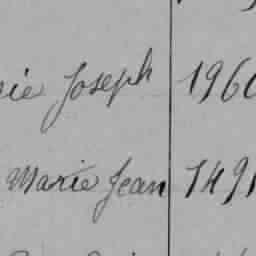 Joseph 196
Marie Jean 1491